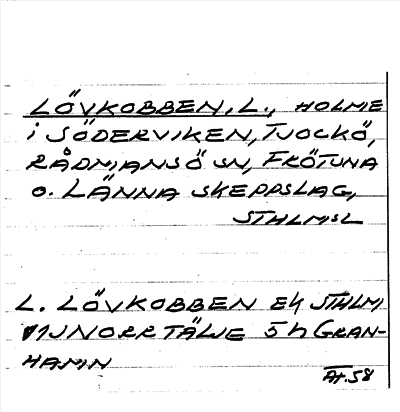 LÖVKOBBEN, L., HOLME
i SÖDERVIKEN, TJOCKÖ,
RÅDMANSÖ SN, FRÖTUNA
O. LÄNNA SKEPPSLAG,
STHLMSL
L. LÖVKOBBEN EK STHLM,
NORRTÄLJE 5 h GRAN-
HAMN
AT.58